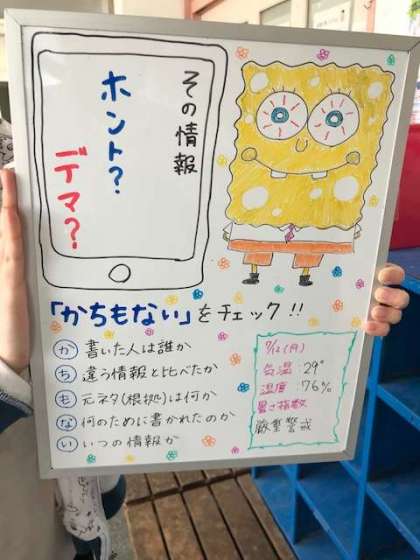 その情報
ホント?
デマ?
「かちもない」をチェック!!
か 書いた人は誰か
ち 違う情報と比べたか
も 元ネタ(根拠)は何か
な 何のために書かれたのか
い いつの情報か
9/12(月)
気温:29°
湿度:76%
暑さ指数
厳重警戒